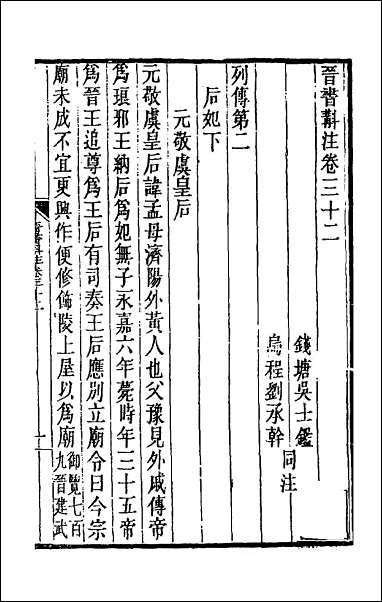 晉書斠注卷三十二
錢塘吳士鑑
烏程劉承幹
同注
列傳第二
后妃下
元敬虞皇后
元敬虞皇后諱孟母濟陽外黃人也父豫見外戚傳帝
爲琅邪王納后爲妃無子永嘉六年薨時年三十五帝
爲晉王追尊爲王后有司奏王后應別立廟令曰今宗
廟未成不宜更興作便修飾陵上屋以爲廟御覽七百
九晉建武